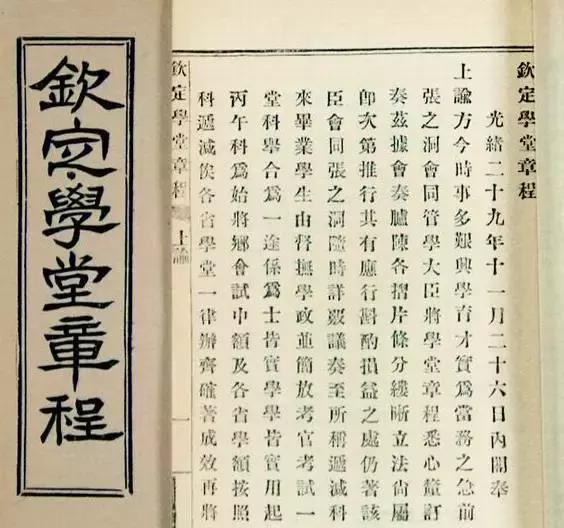 欽定學堂章程
欽定學堂章程
光緒二十九年十一月二十六日內閣奉
上諭方今時事多艱興學育才實爲當務之急前
張之洞會同管學大臣將學堂章程悉心釐訂
奏茲據會奏臚陳各摺片條分縷晰立法尙屬
卽次第推行其有應行斟酌損益之處仍著該
臣會同張之洞隨時詳覈議奏至所稱遞減科
來畢業學生由督撫學政並簡放考官考試一
堂科舉合爲一途係爲士皆實學學皆實用起
丙午科爲始將鄉會試中額及各省學額按照
科遞減俟各省學堂一律辦齊確著成效再將
欽定學堂章程 上諭